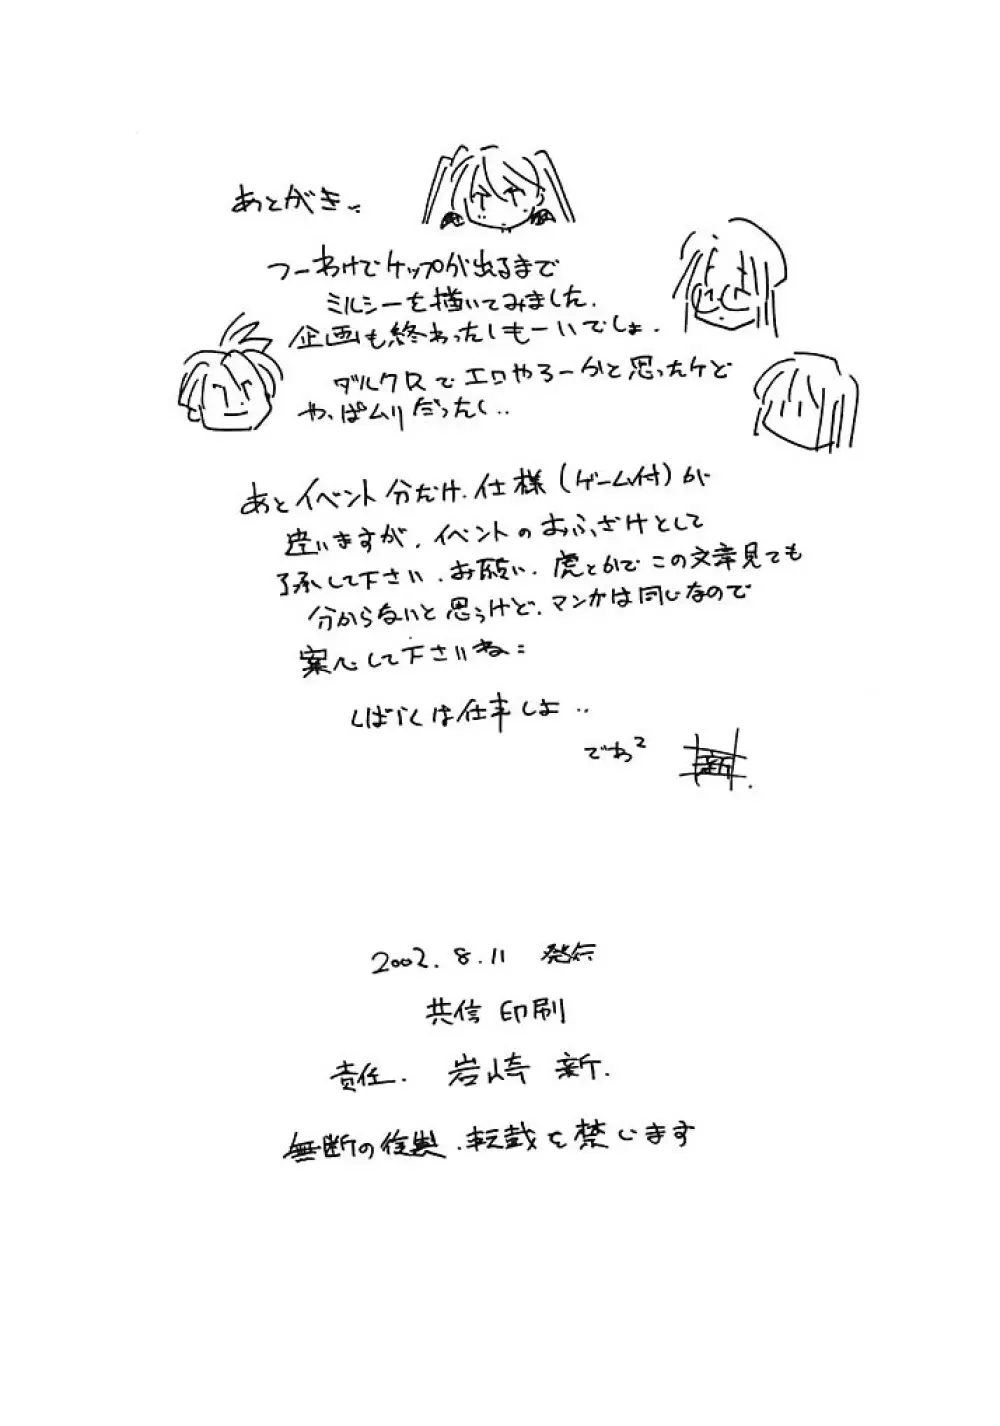 あとがき..
つーわけでゲップが出るまで
ミルシーを描いてみました.
企画も終わったしもーいいでしょ.
ダルクロでエロやろーかと思ったケど
やっぱムリだったし..
あとイベント分だけ.仕様(ゲーム付)が
違いますが.イベントのおふざけとして
了承して下さい.お願い.虎とかでこの文章見ても
分からないと思うけど.マンガは同じなので
安心して下さいね
しばらくは仕事しよ..
でわ2
新.
2002.8.11 発行
共信印刷
責任. 岩崎 新.
無断の複製.転載を禁じます